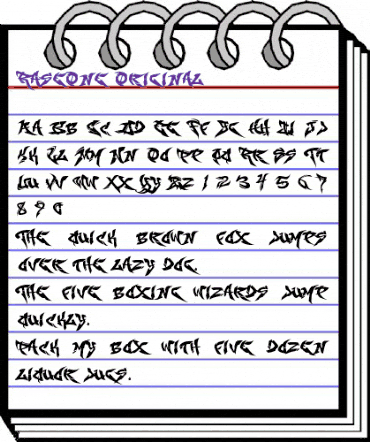 RASEONE ORIGINAL
AA BB CC DD EE FF GG HH II JJ
KK LL MM NN OO PP QQ RR SS TT
UU VV WW XX YY ZZ 1 2 3 4 5 6 7
8 9 0
THE QUICK BROWN FOX JUMPS
OVER THE LAZY DOG.
THE FIVE BOXING WIZARDS JUMP
QUICKLY.
PACK MY BOX WITH FIVE DOZEN
LIQUOR JUGS.